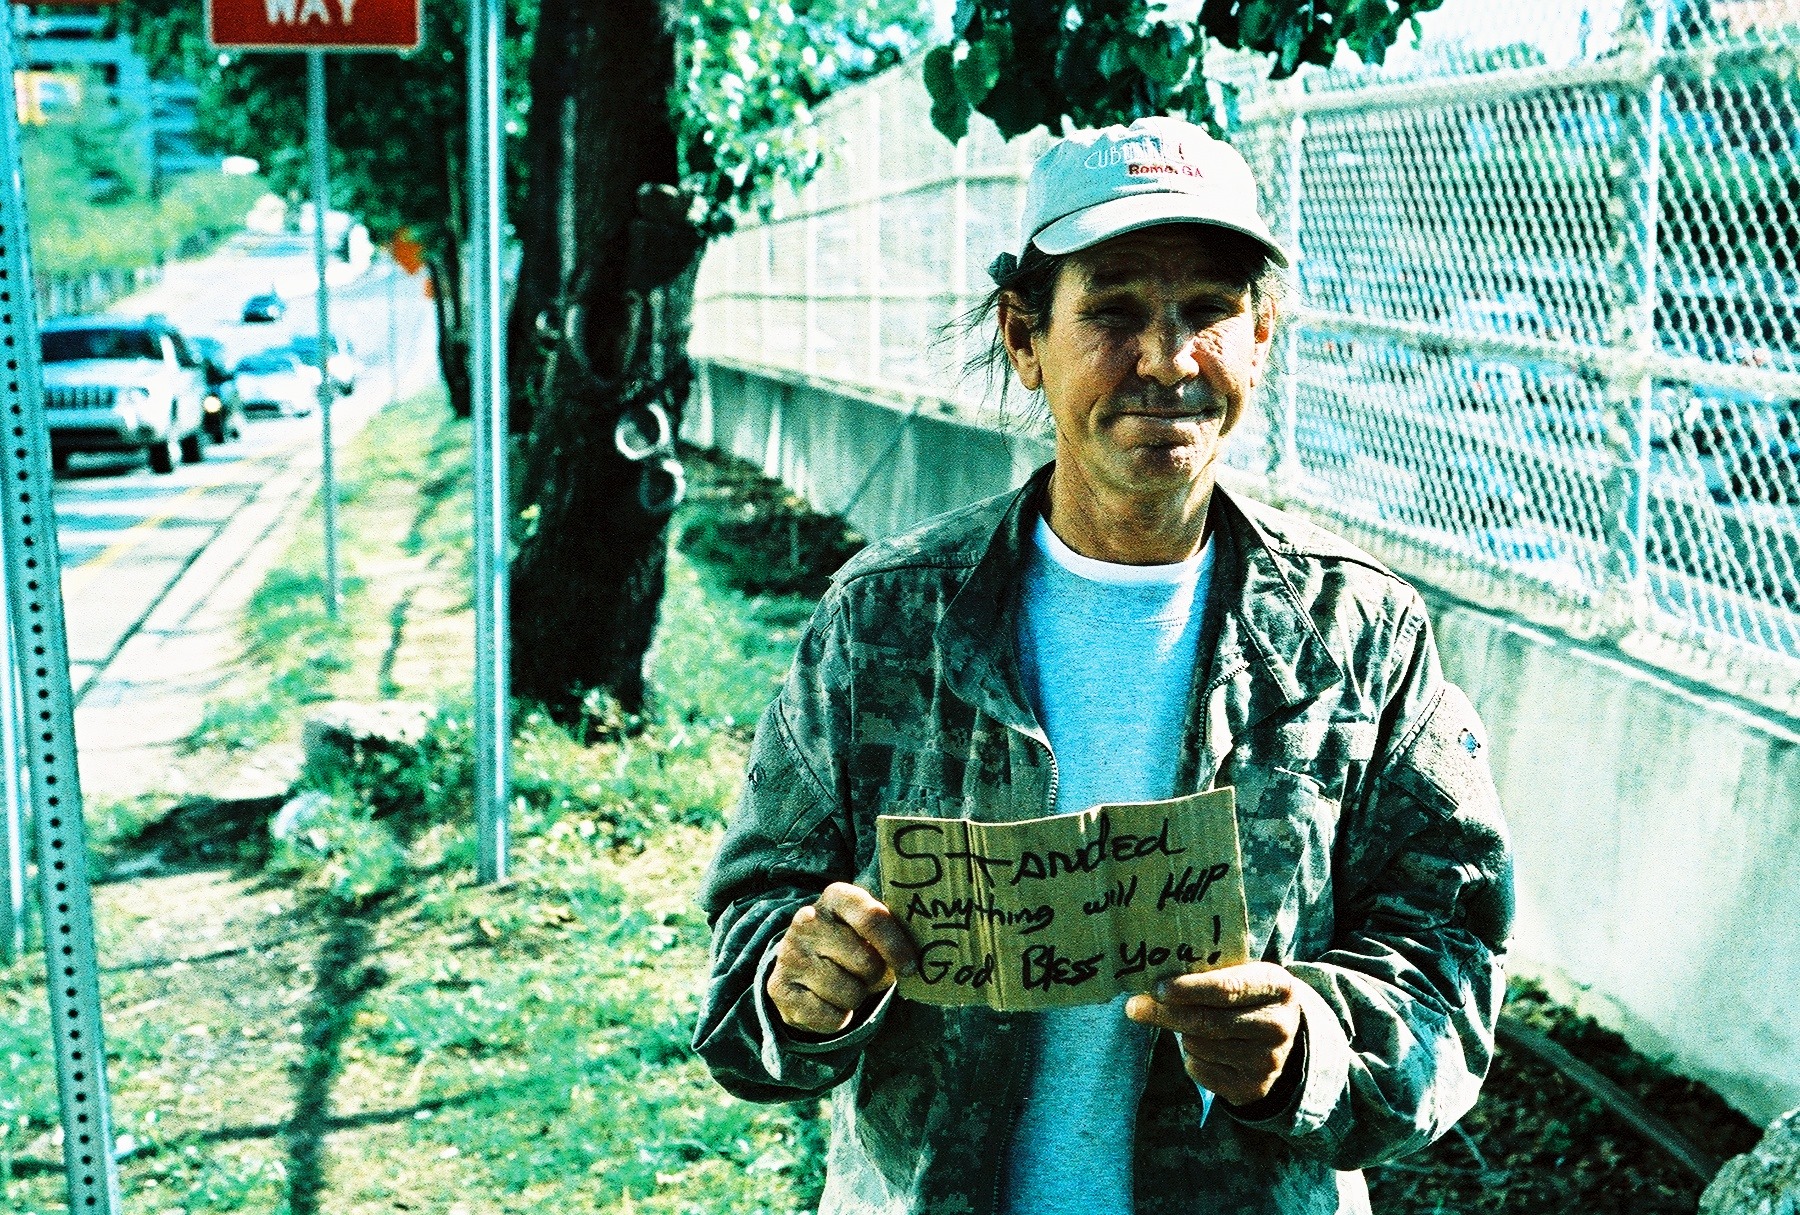 WAY
Rome, GA
Stranded
Anything will Help
God Bless You!